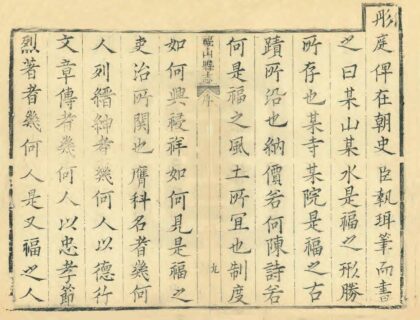 彤庭俾在朝史臣執珥筆而書
之曰某山某水是福之形勝
所存也某寺某院是福之古
蹟所沿也納價若何陳詩若
何是福之風土所宜也制度
福山縣志
序
九
如何興祲祥如何見是福之
吏治所關也膺科名者幾何
人列縉紳者幾何人以德行
文章傳者幾何人以忠孝節
烈著者幾何人是又福之人